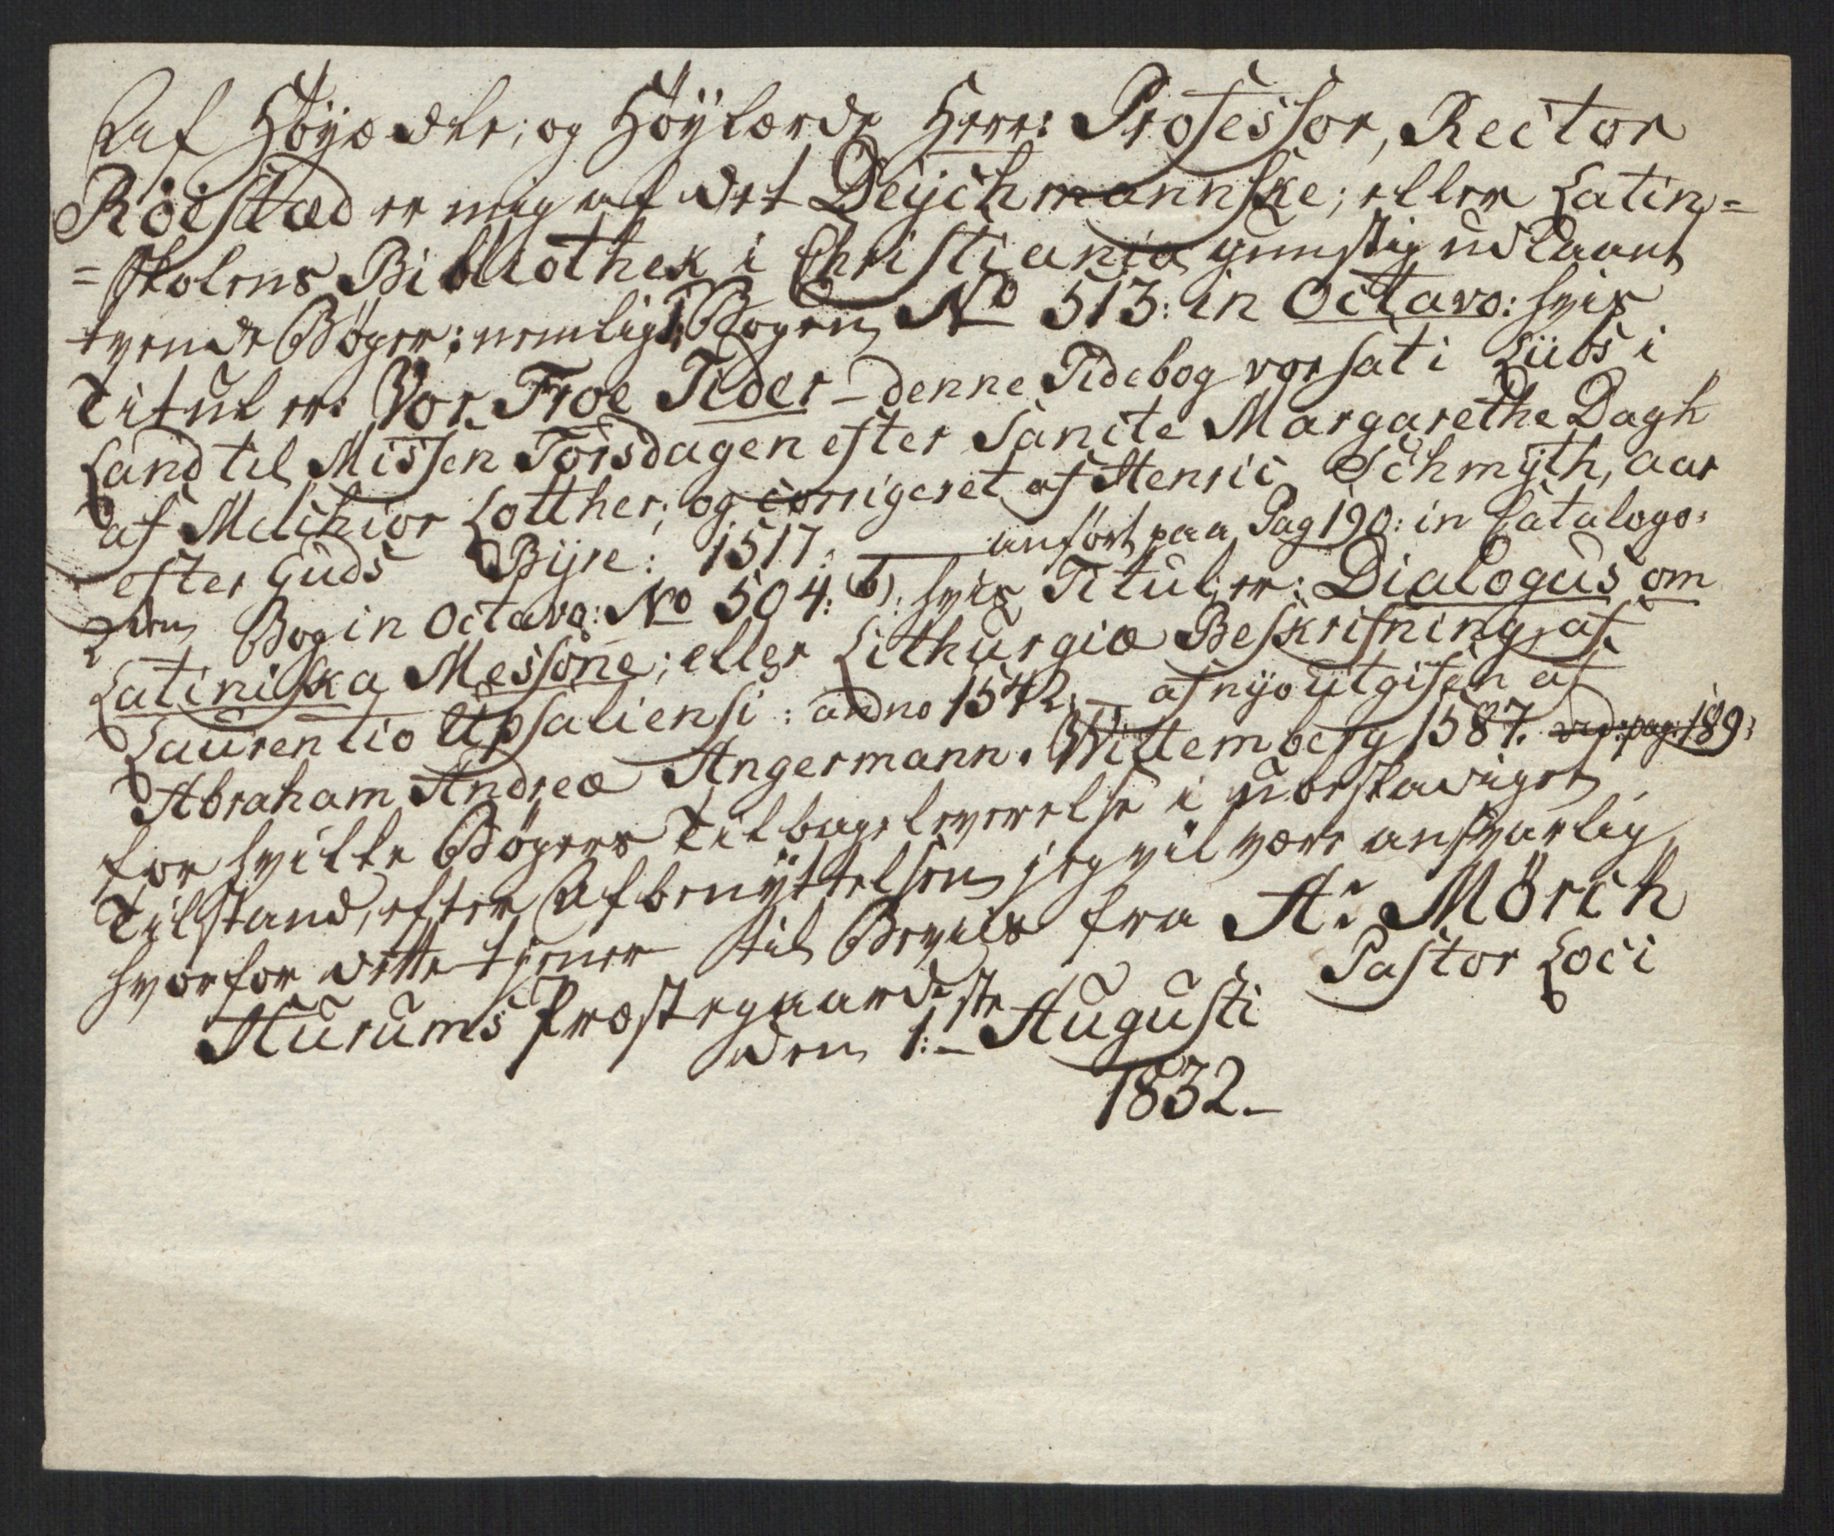 Af Höyædle; og Höylærde Herr: Professor, Rector
Röistæd er mig af det Deÿchmannske; eller Latin=
=Skolens Bibliothek i Christiania gunstig udlaant
tvende Bøger; nemlig: Bogen No 513: in Octavo: hvis
Titul er: Vor Froe Tider – denne Tidebog vor sat i Lübs i
Land til Missen Torsdagen efter Sancte Margarethe Dagh
af Melchior Lotther; og corrigeret af Henric Schmÿth, aar
efter Guds Bÿre: 1517. — anført paa Pag 190: in Catalogo:
2den Bog in Octavo: No 504: (b). hvis Titul er: Dialogus om
Latiniska Messone; eller Lithurgiæ Beskrifning, af
Laurentio Upsaliensi: anno 1542. — af nyo ÿtgifen af
Abraham Andreæ Angermann. Wittemberg 1587. vid: pag: 189:
for hvilke Bøgers Tilbageleverelse i ubeskadiget
Tilstand, efter Afbenÿttelsen jeg vil være ansvarlig
hvorfor dette tjener til Beviis fra H: Mörch
Pastor Loci
Hurums Præstegaard
den 1: ste Augusti
1832. –